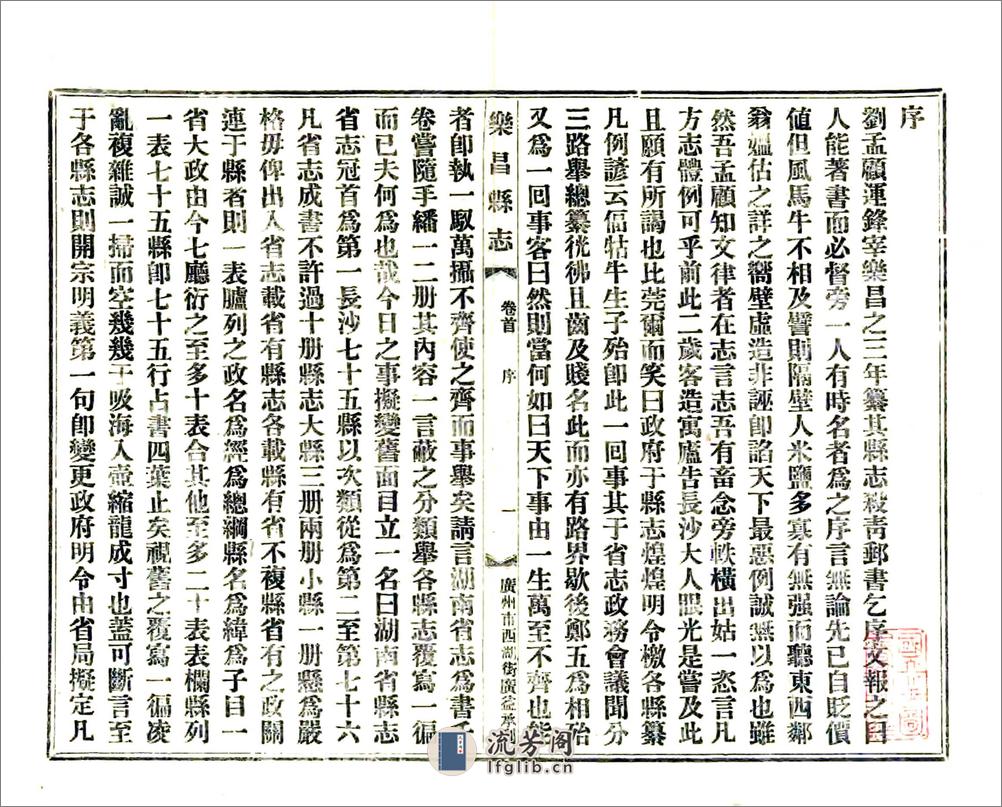 序
劉孟顧運鋒宰樂昌之三年纂其縣志殺靑郵書乞序文報之曰
人能著書而必督旁一人有時名者爲之序言無論先已自貶價
値但風馬牛不相及譬則隔壁人米鹽多寡有無强而聽東西鄰
翁媼估之詳之嚮壁虛造非誣卽諂天下最惡例誠無以爲也雖
然吾孟顧知文律者在志言志吾有畜念旁軼橫出姑一恣言凡
方志體例可乎前此二歲客造寓廬告長沙大人眼光是嘗及此
且願有所謁也比莞爾而笑曰政府于縣志煌煌明令檄各縣纂
凡例諺云偪牯牛生子殆卽此一回事其于省志政務會議聞分
三路舉總纂彷彿且齒及賤名此而亦有路界歇後鄭五相殆
又爲一回事客曰然則當何如曰天下事由一生萬至不齊也能
樂昌縣志
卷首
序
一
廣州市西湖街廣益承刊
者卽執一馭萬攝不齊使之齊而事舉矣請言湖南省志爲書千
卷嘗隨手繙一二册其內容一言蔽之分類舉各縣志覆寫一徧
而已夫何爲也哉今日之事擬變舊面目立一名曰湖南省縣志
省志冠首爲第一長沙七十五縣以次類從爲第二至第七十六
凡省志成書不許過十册縣志大縣三册兩册小縣一册懸爲嚴
格毋俾出入省志載省有縣志各載縣有省不複縣省有之政關
連于縣者則一表臚列之政名爲經爲總綱縣名爲緯爲子目一
省大政由今七廳衍之至多十表合其他至多二十表表欄縣列
一表七十五縣卽七十五行占書四葉止矣視舊之覆寫一徧凌
亂複雜誠一掃而空幾幾于吸海入壺縮龍成寸也蓋可斷言至
于各縣志則開宗明義第一句卽變更政府明令由省局擬定凡
流芳阁
lfglib.cn